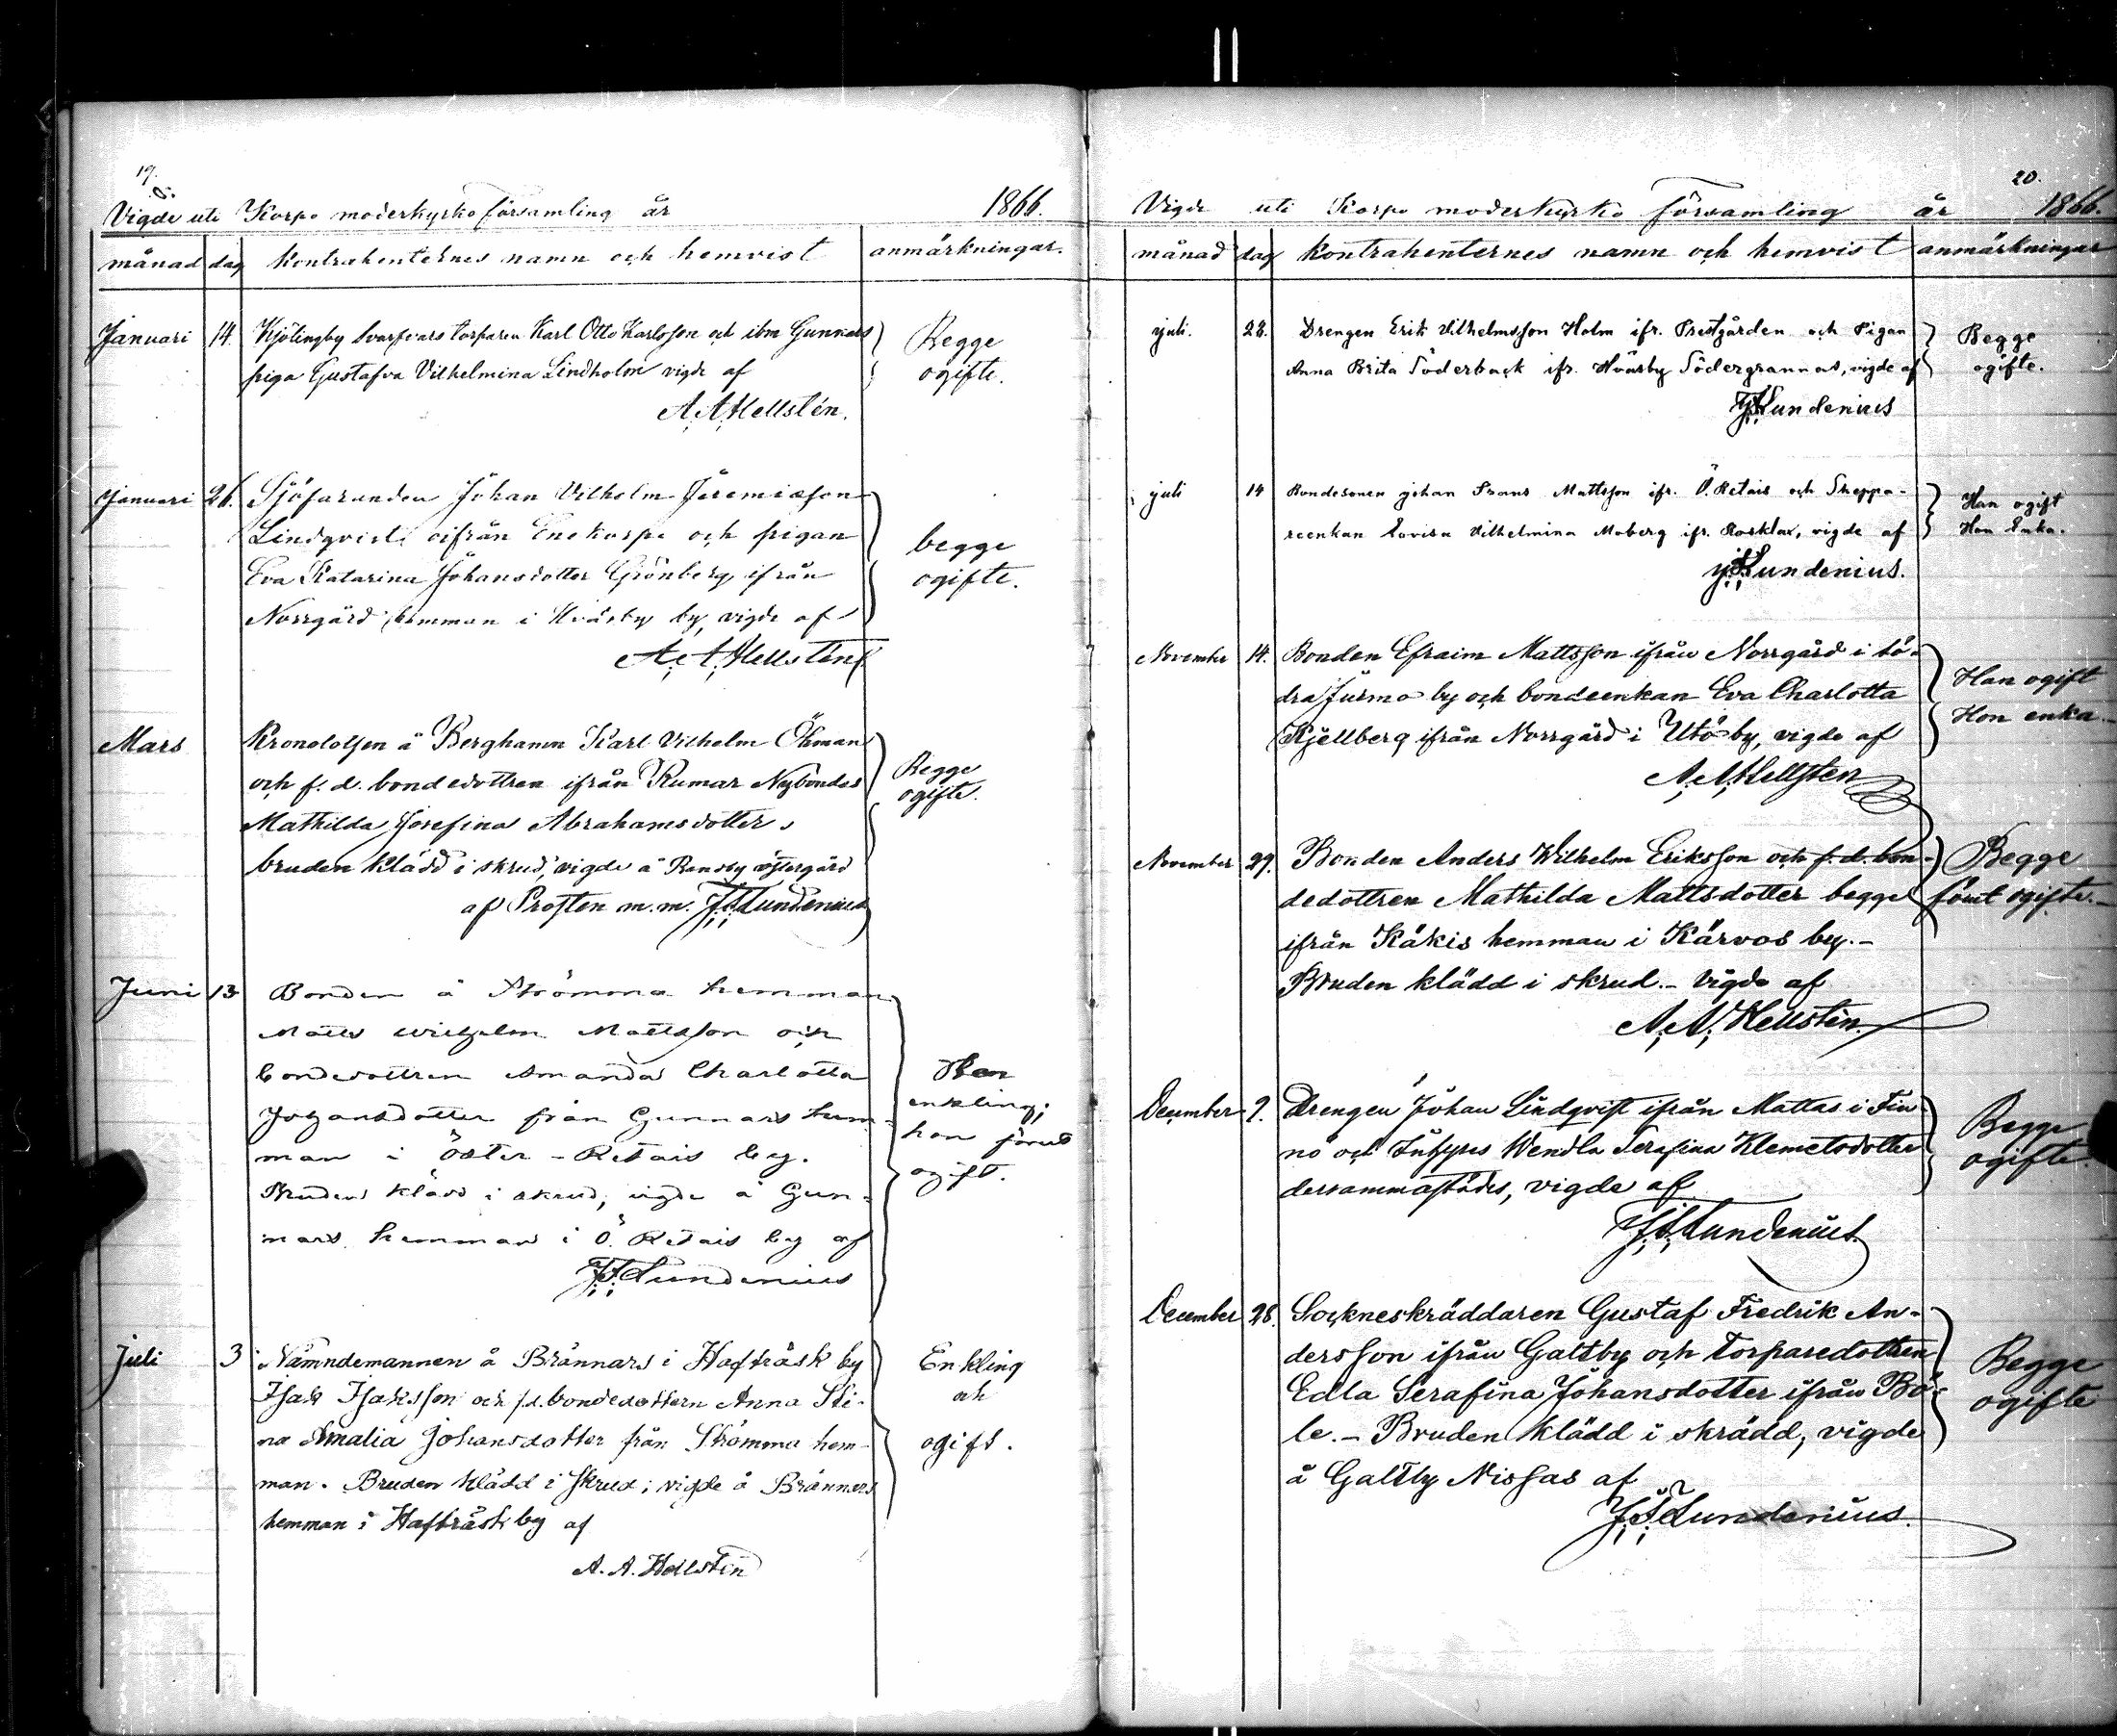 19.
Vigde uti Korpo moderkyrko församling år 1866.
månad dag kontrahenternes namn och hemvist anmärkningar.
Januari 14. Kjölingby Svarfvars torparen Karl Otto Karlsson och ibm Gunnars Begge
piga Gustafva Vilhelmina Lindholm vigde af ogifte.
A. A. Hellstén.
Januari 26. Sjöfaranden Johan Vilhelm Jeremiasson
Lindqvist ifrån Enekorpo och pigan begge
Eva Katarina Johansdotter Grönberg ifrån ogifte.
Norrgård hemman i Hväsby by, vigde af
A. A. Hellstén
Mars Kronolotsen å Berghamn Karl Vilhelm Öhman
och f. d. bondedottren ifrån Rumar Nybondas Begge
Mathilda Josefina Abrahamsdotter, ogifte.
bruden klädd i skrud, vigde å Rensby östergård
af Prosten m. m. J. F. Lundenius
Juni 13 Bonden å Strömma hemman
Matts Wilhelm Mattsson och
bondedottren Amanda Charlotta Han
Johansdotter från Gunnars hem- enkling;
man i Öster-Retais by. hon förut
Bruden klädd i skrud; vigde å Gun- ogift.
nars hemman i Ö. Retais by af
J. F. Lundenius
Juli 3 Nämndemannen å Brännars i Hafträsk by Enkling
Isak Isaksson och f.d. bondedottern Anna Sti- och
na Amalia Johansdotter från Strömma hem- ogift.
man. Bruden klädd i skrud; vigde å Brännars
hemman i Hafträsk by af
A. A. Hellstén
20.
Vigde uti Korpo moderkyrko församling år 1866.
månad dag kontrahenternes namn och hemvist anmärkningar
juli. 22. Drengen Erik Vilhelmsson Holm ifr. Prestgården och Pigan Begge
Anna Brita Söderback ifr. Hväsby Södergrannas, vigde af ogifte.
J. F. Lundenius
juli 14 Bondesonen johan Frans Mattsson ifr. Ö. Retais och Skeppa- Han ogift
reenkan Lovisa Vilhelmina Moberg ifr. Rosklax, vigde af Hon Enka.
J. F. Lundenius.
November 14. Bonden Efraim Mattsson ifrån Norrgård i Sö-
dra Jurmo by och bondeenkan Eva Charlotta Han ogift
Kjellberg ifrån Norrgård i Utö by, vigde af Hon enka
A. A. Hellsten
November 29. Bonden Anders Wilhelm Eriksson och f. d. bon- Begge
dedottren Mathilda Mattsdotter begge förut ogifte.
ifrån Käkis hemman i Kärvos by.-
Bruden klädd i skrud.- vigde af
A. A. Hellstén.
December 9. Drengen Johan Lindqvist ifrån Mattas i Fin-
nö och Wendla Serafina Klemetsdotter Begge
dersammastädes, vigde af ogifte.
J. F. Lundenius.
December 28. Sockneskräddaren Gustaf Fredrik An-
dersson ifrån Galtby och torparedottren Begge
Edla Serafina Johansdotter ifrån Bö- ogifte
le.- Bruden klädd i skrädd, vigde
å Galtby Nissas af
J. F. Lundenius.